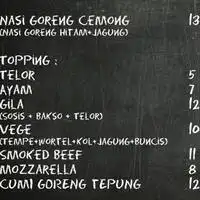 NASI GORENG CEMONG 13
(NASI GORENG HITAM+JAGUNG)
TOPPING :
TELOR 5
AYAM 7
GILA 12
(SOSIS + BAKSO + TELOR)
VEGE 10
(TEMPE+WORTEL+KOL+JAGUNG+BUNCIS)
SMOKED BEEF 11
MOZZARELLA 8
CUMI GORENG TEPUNG 12